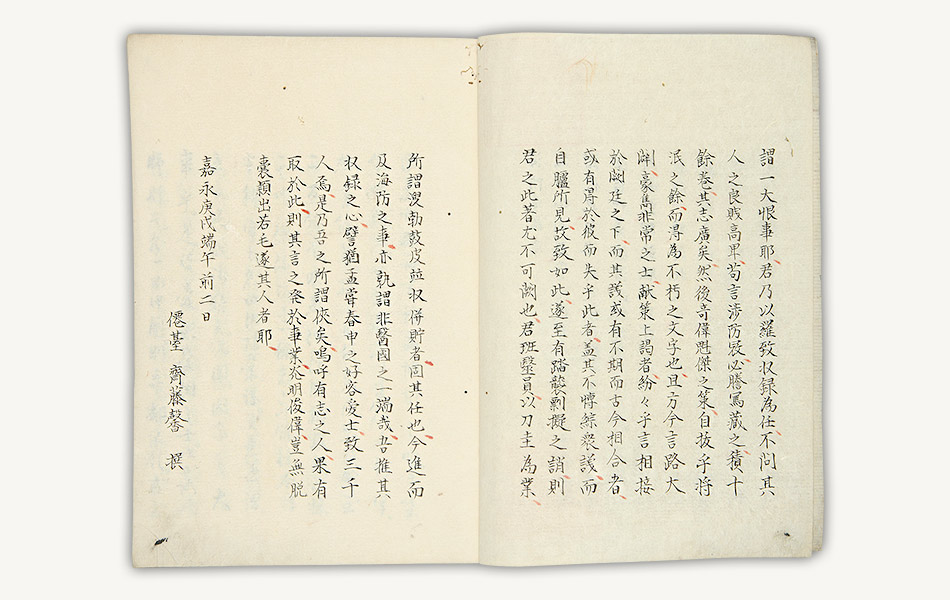 謂一大恨事耶君乃以羅致収録為任不問其
人之良賤高卑苟言渉防辰必謄寫蔵之積十
餘巻其志廣矣然後竒偉魁傑之策自抜乎将
泯之餘而得為不朽之文字也且方今言路大
闢豪雋非常之士献策上謁者紛々乎言相接
於闕廷之下而其議或有不期而古今相合者
或有得於彼而失乎此者盖其不博綜衆議而
自臚所見故致如此遂至有踏襲剽擬之誚則
君之此著尤不可闕也君班醫員以刀圭為業
所謂溲勃鼓皮竝収併貯者固其任也今進而
及海防之事亦孰謂非醫國之一端哉吾推其
収録之心譬猶孟甞春申之好客愛士致三千
人焉是乃吾之所謂侠矣嗚呼有志之人果有
取於此則其言之発於事業光明俊偉豈無脱
嚢頴出若毛遂其人者耶
嘉永庚戌端午前二日
僊䑓 齋藤馨 撰